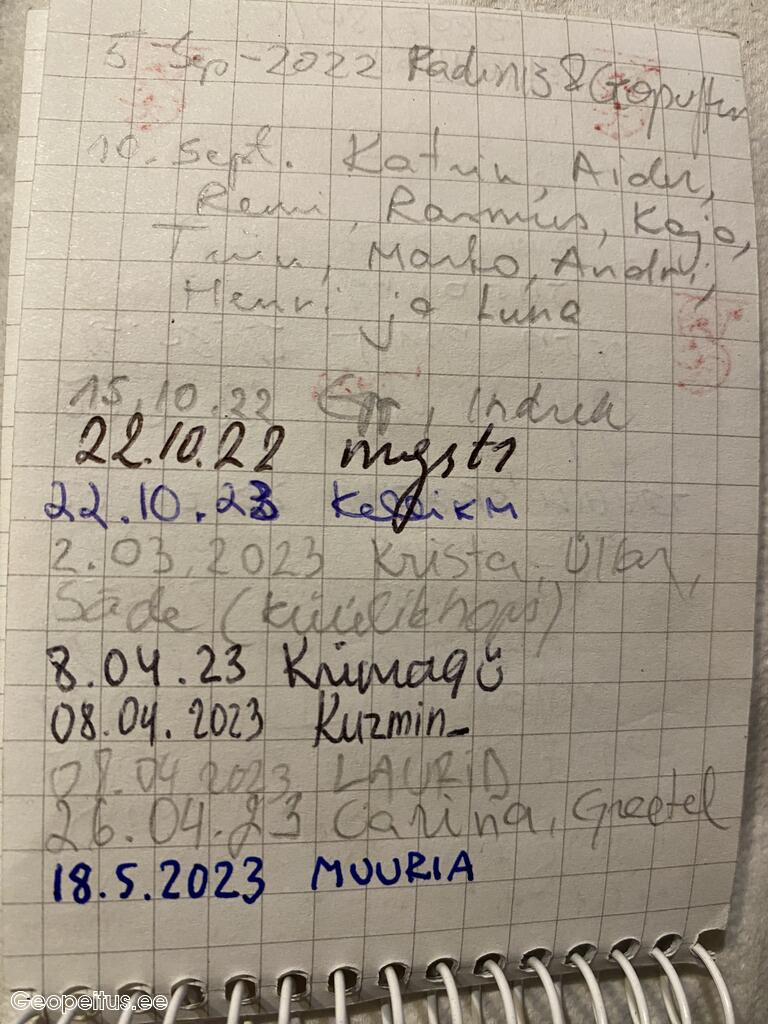 5-Sep-2022 Radinis & Geopuffin
10. Sept. Katrin, Aider,
Remi, Rasmus, Kajo,
Tiiu, Marko, Andri,
Henri ja Luna
15.10.22 Epp, Indrek
22.10.22 mgsts
22.10.23
2.03.2023 Krista, Ülar,
Säde (küülikhops)
8.04.23
08.04.2023 Kuzmin_
08.04 2023 LAURID
26.04.23 Carina, Greetel
18.5.2023 MUURIA
Geopeitus.ee